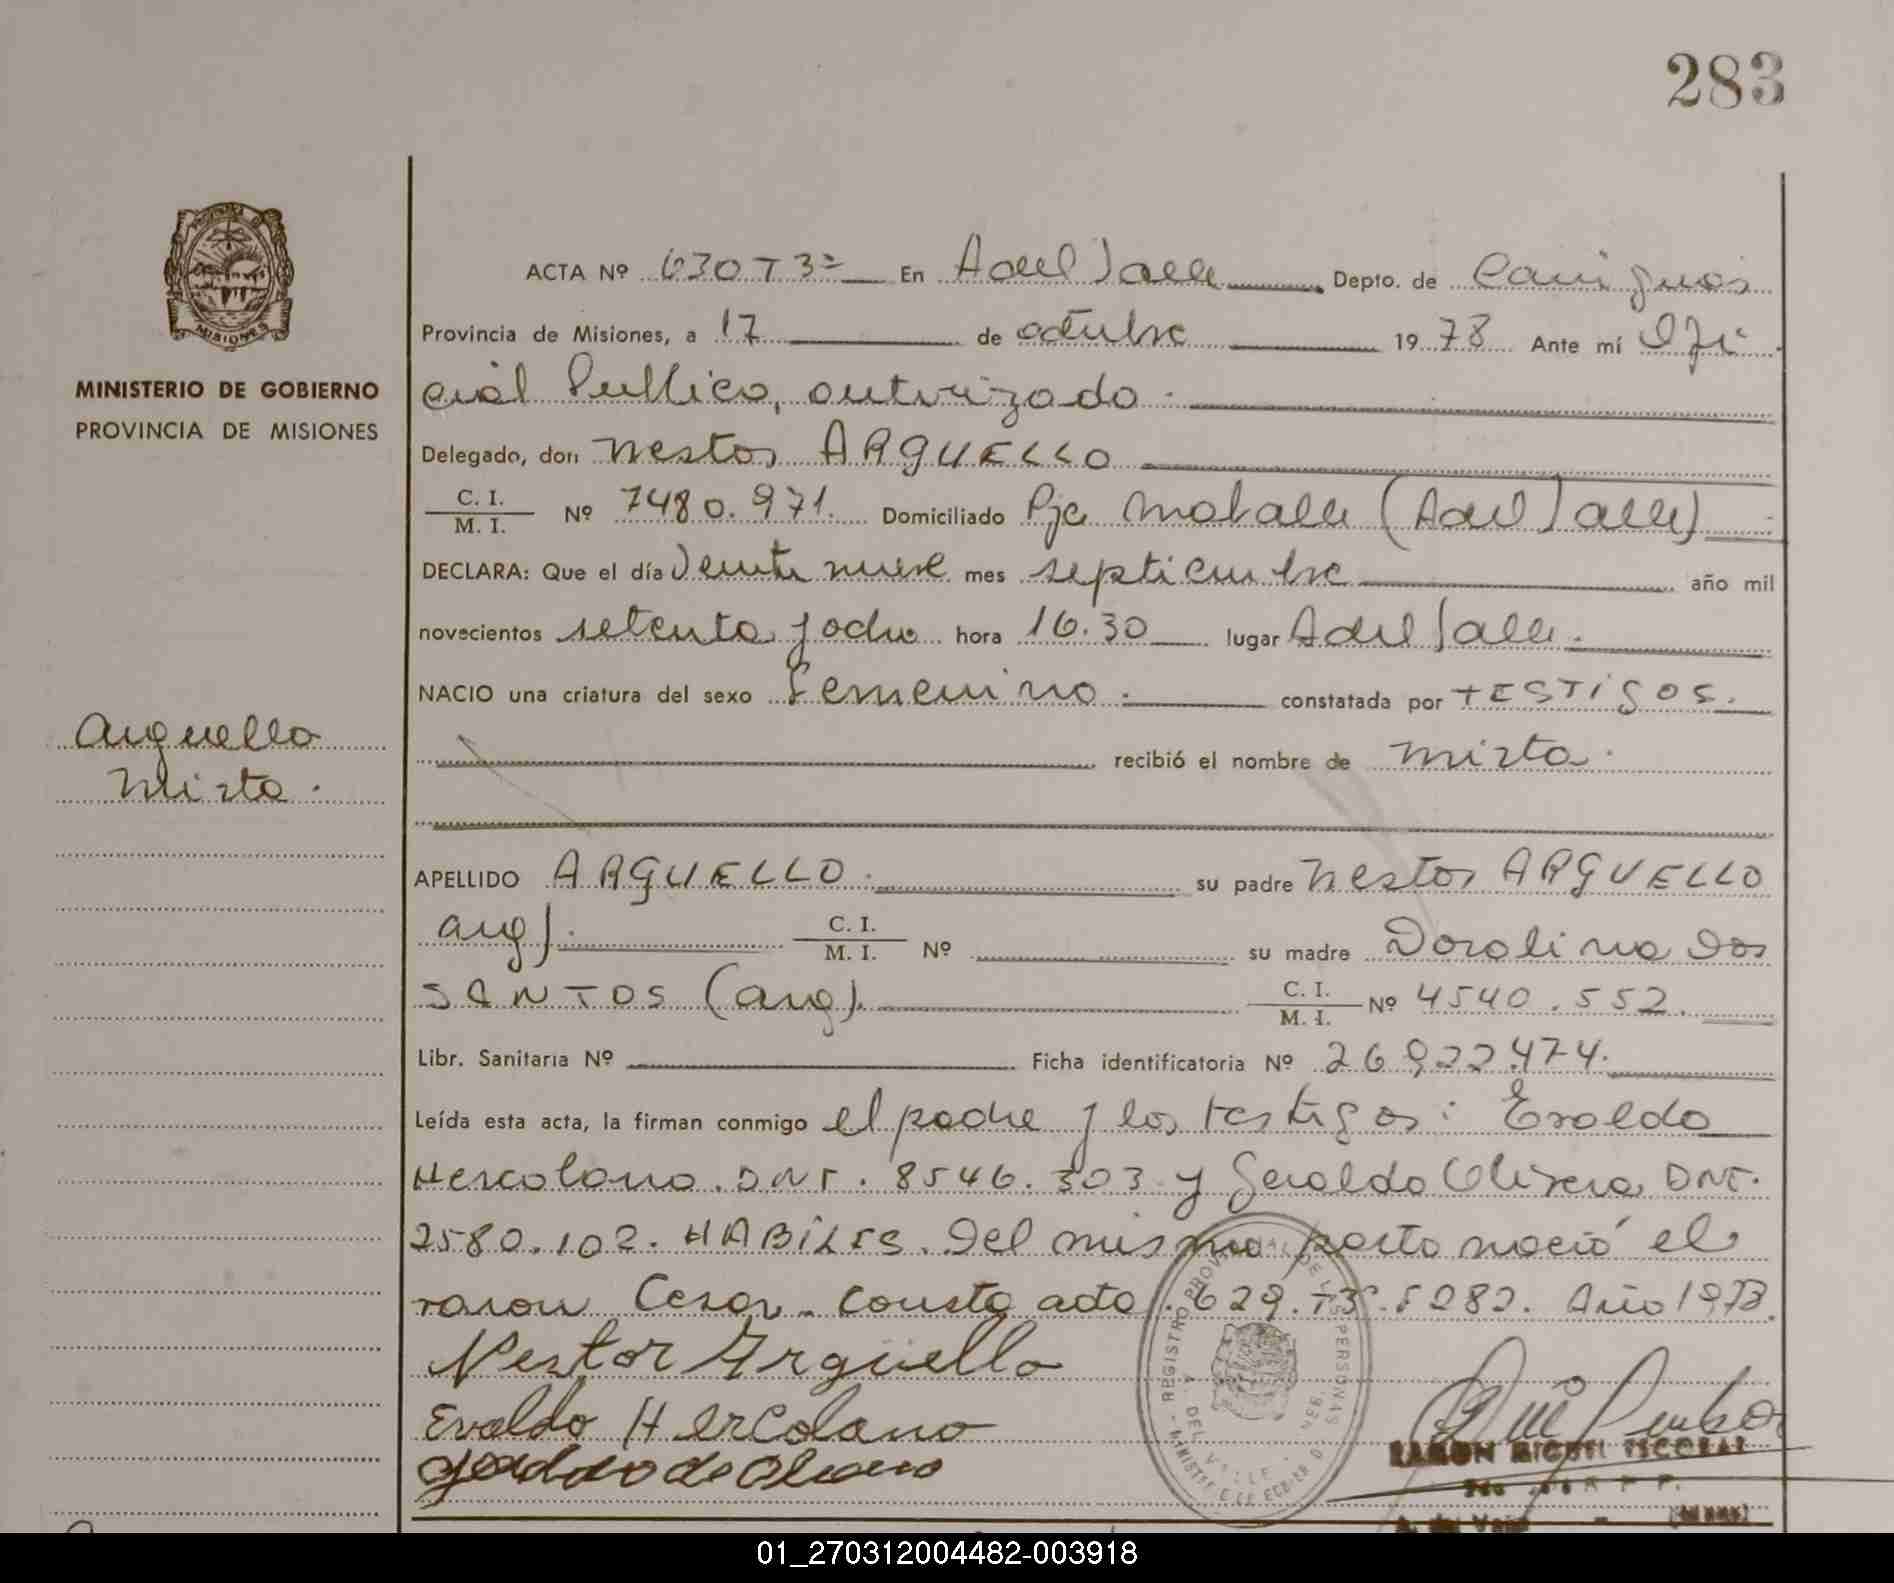 283
ACTA Nº 630 T 3º En A del Valle Depto. de Cainguás
Provincia de Misiones, a 17 de octubre 1978 Ante mí Ofi
MINISTERIO DE GOBIERNO
PROVINCIA DE MISIONES
cial Publico, autorizado.
Delegado, don Nestor ARGUELLO
C. I.
M. I. Nº 7480.971. Domiciliado Pje Mataller (A del Valle)
DECLARA: Que el día veinti nueve mes septiembre año mil
novecientos setenta y ocho hora 16.30 lugar A del Valle.
NACIO una criatura del sexo femenino. constatada por TESTIGOS.
Arguello
Mirta.
recibió el nombre de Mirta.
APELLIDO ARGUELLO. su padre Nestor ARGUELLO
arg). C. I. M. I. Nº su madre Doralina Dos
SANTOS (arg). C. I. M. I. Nº 4540.552.
Libr. Sanitaria Nº Ficha identificatoria Nº 26922.474.
Leída esta acta, la firman conmigo el padre y los testigos: Evaldo
Hercolano. DNI. 8546.303 y Geraldo Olivera DNI.
2580.102. HABILES. Del mismo parto nació el
varon Cesar. Consta acta. 629. T3º. F 282. Año 1978.
Nestor Argüello
Evaldo Hercolano
REGISTRO PROVINCIAL DE LAS PERSONAS
A. DEL VALLE
RAMON MIGUEL ESCOBAR
MINISTERIO DE GOBIERNO
01_270312004482-003918